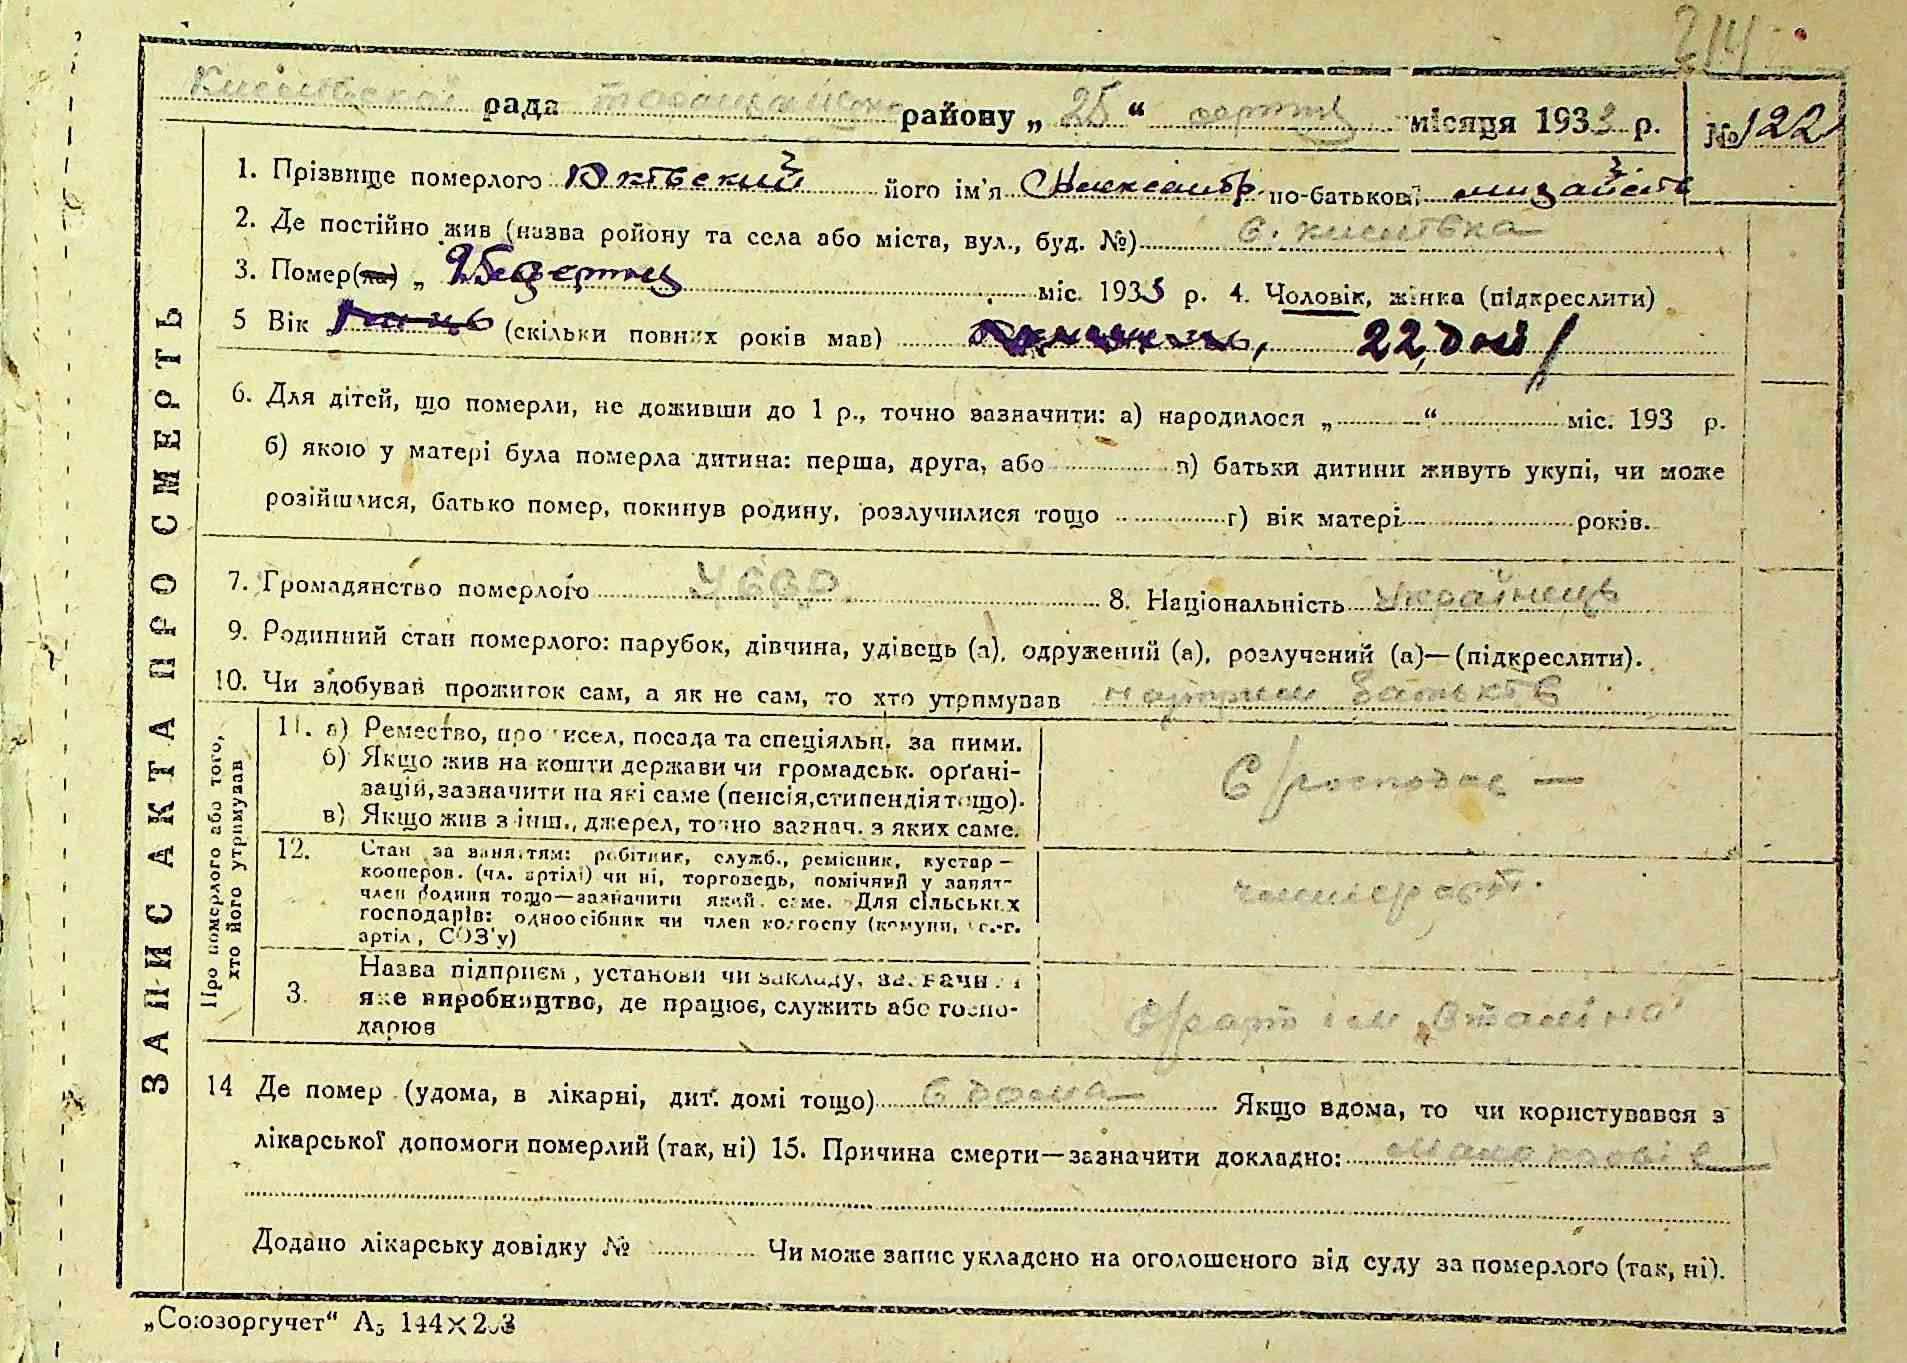 214
рада району „ 25 “ серпня місяця 1933 р. № 122
1. Прізвище померлого його ім'я Александр по-батькові
2. Де постійно жив (назва ройону та села або міста, вул., буд. №) с.
3. Помер(ла) „ 25 серпня міс. 1933 р. 4. Чоловік, жінка (підкреслити)
5 Вік (скільки повних років мав) 22, дні
6. Для дітей, що померли, не доживши до 1 р., точно зазначити: а) народилося „ “ міс. 193 р.
б) якою у матері була померла дитина: перша, друга, або в) батьки дитини живуть укупі, чи може
розійшлися, батько помер, покинув родину, розлучилися тощо г) вік матері років.
7. Громадянство померлого УССР 8. Національність Українець
9. Родинний стан померлого: парубок, дівчина, удівець (а), одружений (а), розлучений (а)—(підкреслити).
10. Чи здобував прожиток сам, а як не сам, то хто утримував
ЗАПИС АКТА ПРО СМЕРТЬ
Про померлого або того, хто його утримував
11. а) Ремество, промисел, посада та спеціяльн. за ними.
б) Якщо жив на кошти держави чи громадськ. орґані-
зацій, зазначити на які саме (пенсія, стипендія тощо).
в) Якщо жив з інш., джерел, точно зазнач. з яких саме.
С/господар —
12. Стан за заняттям: робітник, служб., ремісник, кустар —
кооперов. (чл. артілі) чи ні, торговець, помічний у занят-
член родини тощо—зазначити який саме. Для сільських
господарів: одноосібник чи член колгоспу (комуни, с.-г.
артіл, СОЗ'у)
3. Назва підприєм, установи чи закладу, зазначи і
яке виробництво, де працює, служить або госпо-
дарює
С/г арт ім „Сталіна"
14 Де помер (удома, в лікарні, дит. домі тощо) в дома Якщо вдома, то чи користувався з
лікарської допомоги померлий (так, ні) 15. Причина смерти—зазначити докладно: Малокровіє
Додано лікарську довідку № Чи може запис укладено на оголошеного від суду за померлого (так, ні).
„Союзоргучет“ А5 144×203